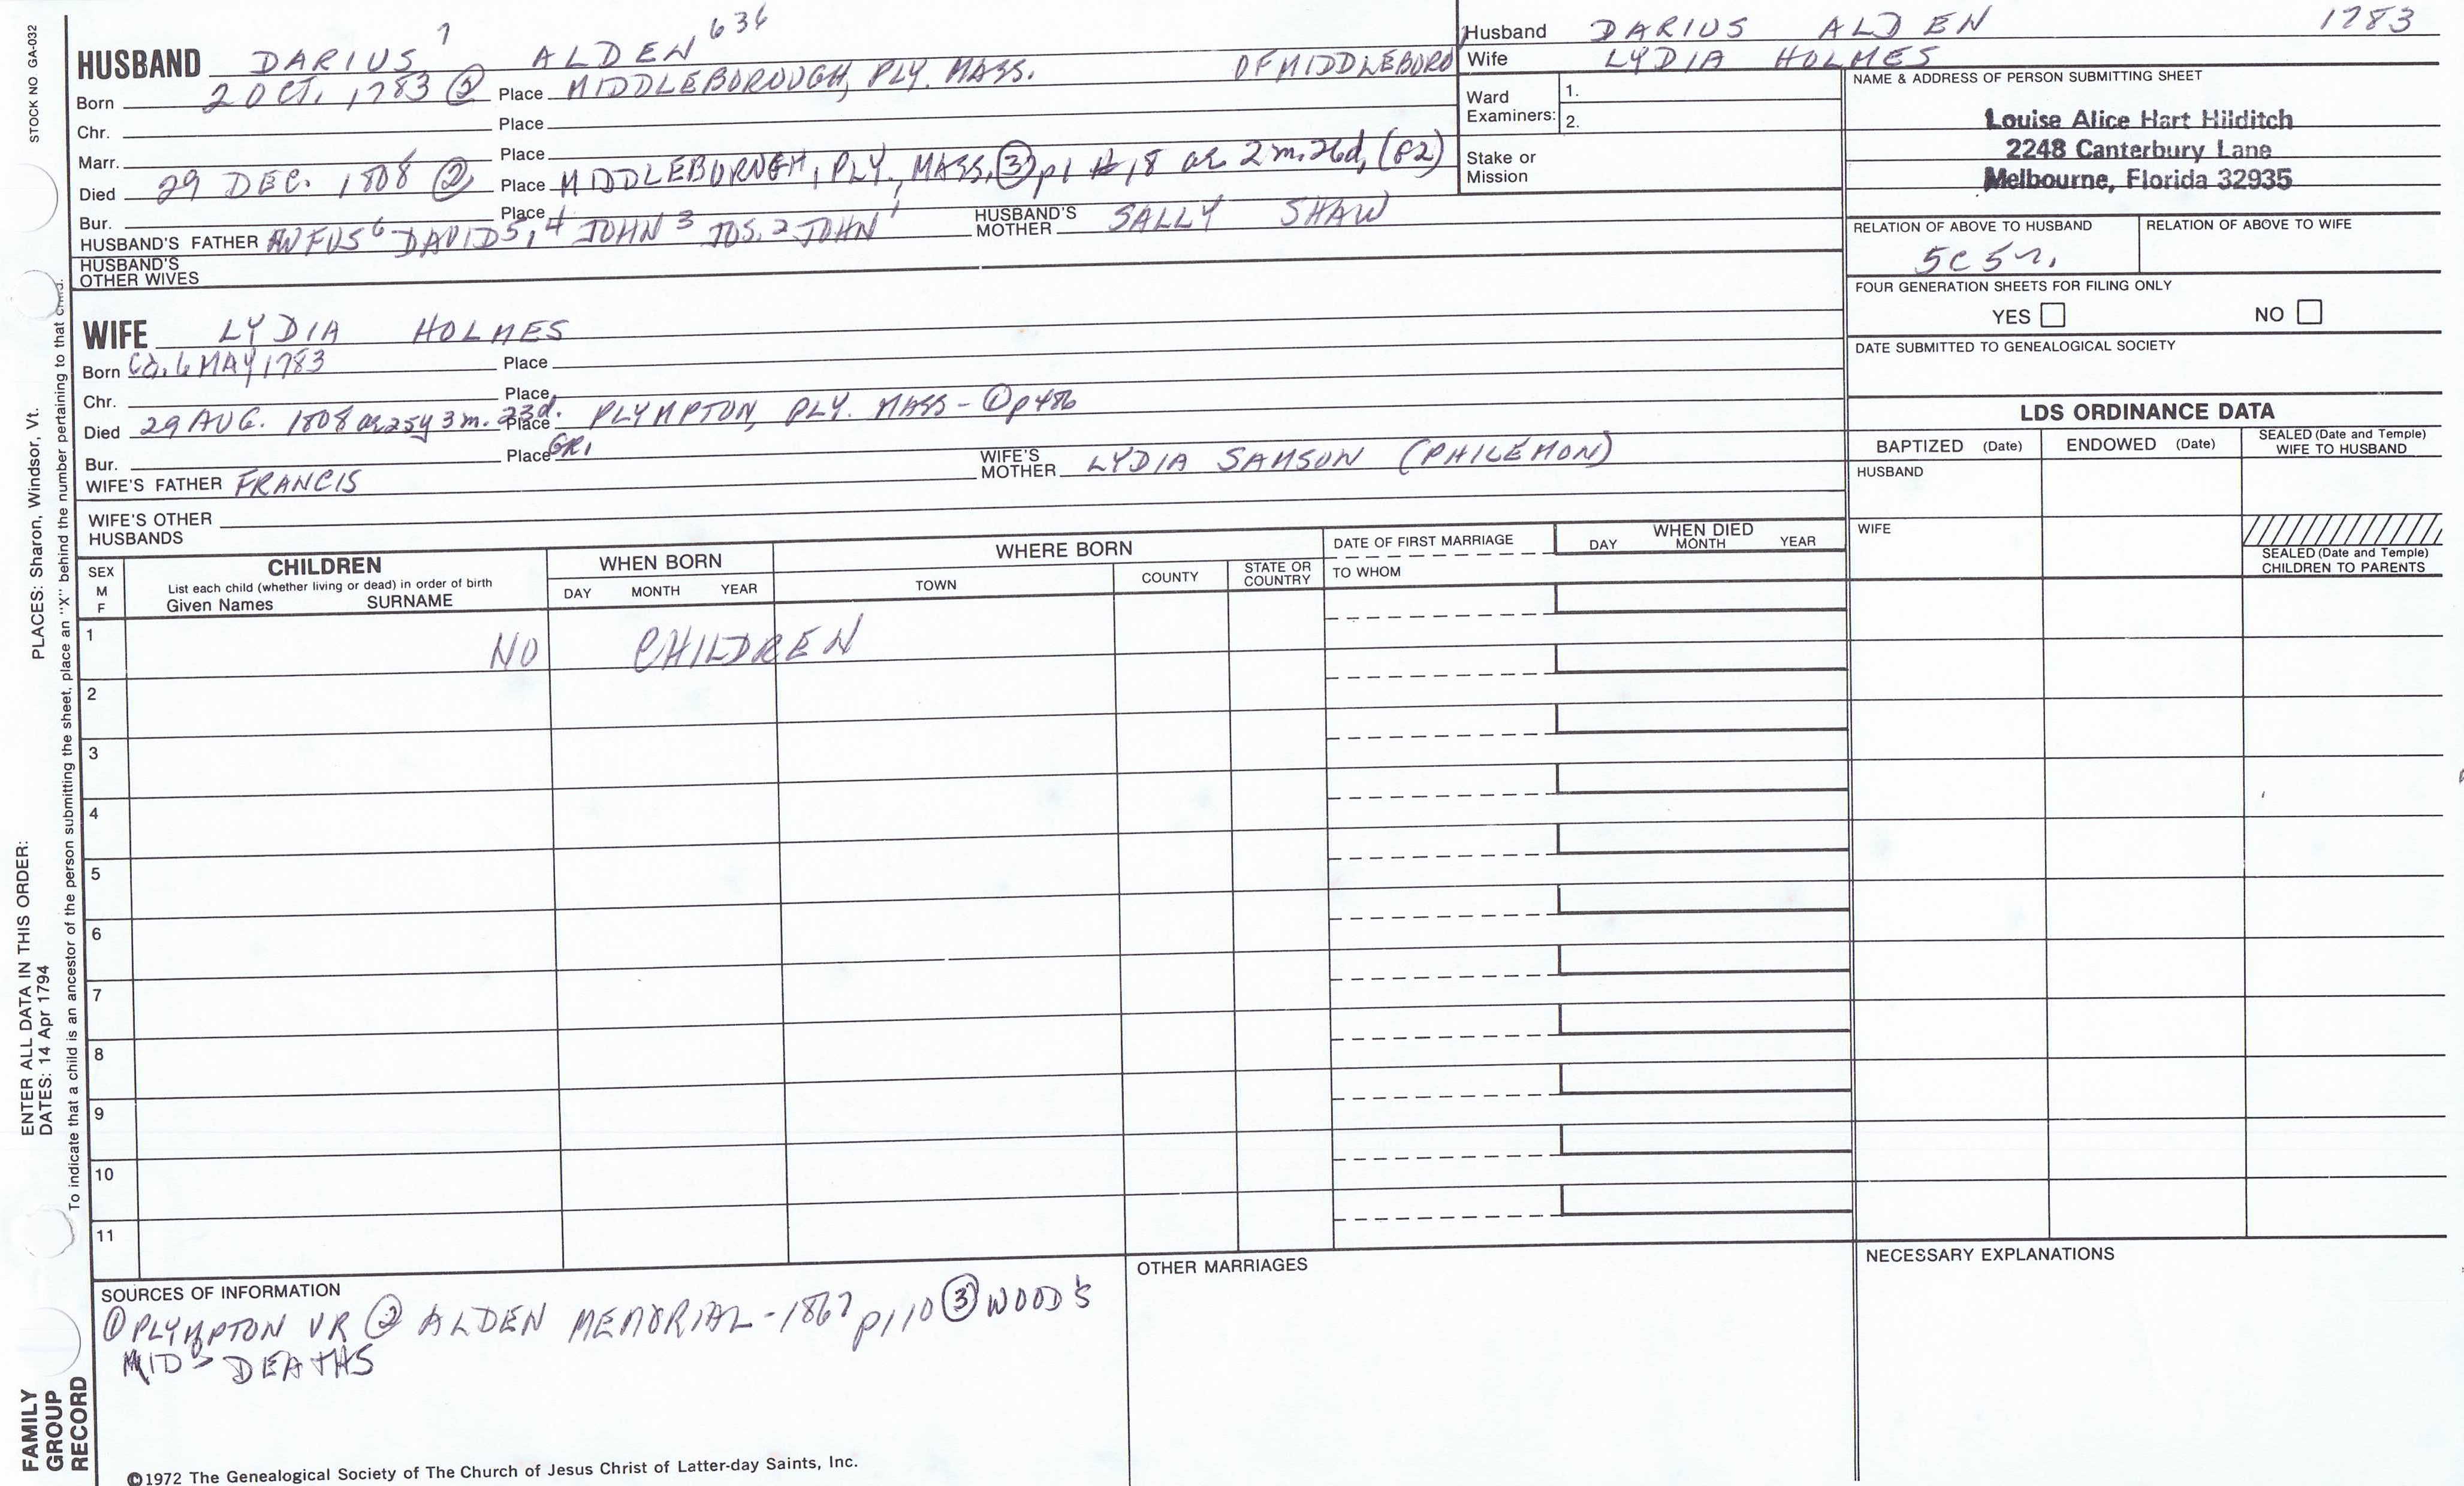 STOCK NO GA-032
HUSBAND DARIUS 7 ALDEN 636 OF MIDDLEBORO
Born 2 OCT. 1783 ② Place MIDDLEBOROUGH, PLY. MASS.
Chr. Place
Marr. Place
Died 29 DEC. 1808 ② Place MIDDLEBOROUGH, PLY., MASS, ③ p1 #18 ae 2 m. 26d, (82)
Bur. Place
HUSBAND'S FATHER RUFUS 6 DAVID 5, 4 JOHN 3 JOS. 2 JOHN 1 HUSBAND'S MOTHER SALLY SHAW
HUSBAND'S OTHER WIVES
WIFE LYDIA HOLMES
Born Ca. 6 MAY 1783 Place
Chr. Place
Died 29 AUG. 1808 ae 25y 3 m. 23d. Place PLYMPTON, PLY. MASS - ① p486
Bur. Place GR1
WIFE'S FATHER FRANCIS WIFE'S MOTHER LYDIA SAMSON (PHILEMON)
WIFE'S OTHER HUSBANDS
Husband DARIUS ALDEN 1783
Wife LYDIA HOLMES
Ward Examiners: 1. 2.
Stake or Mission
NAME & ADDRESS OF PERSON SUBMITTING SHEET
Louise Alice Hart Hilditch
2248 Canterbury Lane
Melbourne, Florida 32935
RELATION OF ABOVE TO HUSBAND RELATION OF ABOVE TO WIFE
5C 5r.
FOUR GENERATION SHEETS FOR FILING ONLY
YES NO
DATE SUBMITTED TO GENEALOGICAL SOCIETY
LDS ORDINANCE DATA
BAPTIZED (Date) ENDOWED (Date) SEALED (Date and Temple) WIFE TO HUSBAND
HUSBAND
WIFE
SEALED (Date and Temple) CHILDREN TO PARENTS
SEX M F
CHILDREN
List each child (whether living or dead) in order of birth
Given Names SURNAME
WHEN BORN
DAY MONTH YEAR
WHERE BORN
TOWN COUNTY STATE OR COUNTRY
DATE OF FIRST MARRIAGE
TO WHOM
WHEN DIED
DAY MONTH YEAR
1 NO CHILDREN
2
3
4
5
6
7
8
9
10
11
SOURCES OF INFORMATION
① PLYMPTON VR ② ALDEN MEMORIAL - 1867 p110 ③ WOOD'S
MID'O DEATHS
OTHER MARRIAGES
NECESSARY EXPLANATIONS
©1972 The Genealogical Society of The Church of Jesus Christ of Latter-day Saints, Inc.
FAMILY GROUP RECORD
ENTER ALL DATA IN THIS ORDER:
DATES: 14 Apr 1794 PLACES: Sharon, Windsor, Vt.
To indicate that a child is an ancestor of the person submitting the sheet, place an "X" behind the number pertaining to that child.